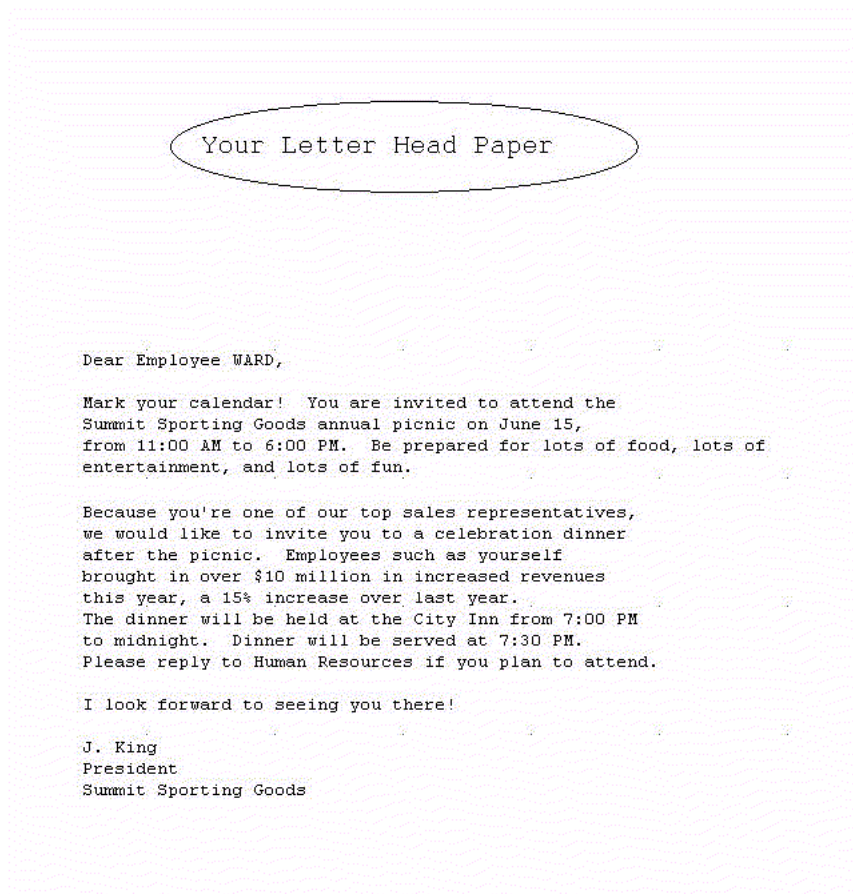 Your Letter Head Paper
Dear Employee WARD,
Mark your calendar!  You are invited to attend the
Summit Sporting Goods annual picnic on June 15,
from 11:00 AM to 6:00 PM.  Be prepared for lots of food, lots of
entertainment, and lots of fun.
Because you're one of our top sales representatives,
we would like to invite you to a celebration dinner
after the picnic.  Employees such as yourself
brought in over $10 million in increased revenues
this year, a 15% increase over last year.
The dinner will be held at the City Inn from 7:00 PM
to midnight.  Dinner will be served at 7:30 PM.
Please reply to Human Resources if you plan to attend.
I look forward to seeing you there!
J. King
President
Summit Sporting Goods